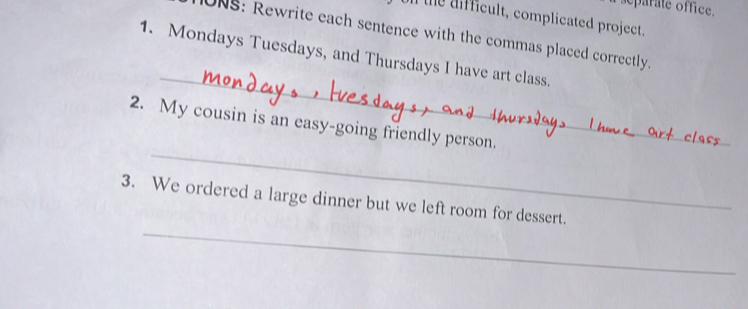 separate office.
the difficult, complicated project.
: Rewrite each sentence with the commas placed correctly.
1. Mondays Tuesdays, and Thursdays I have art class.
mondays, tuesdays, and thursdays I have art class
2. My cousin is an easy-going friendly person.
3. We ordered a large dinner but we left room for dessert.